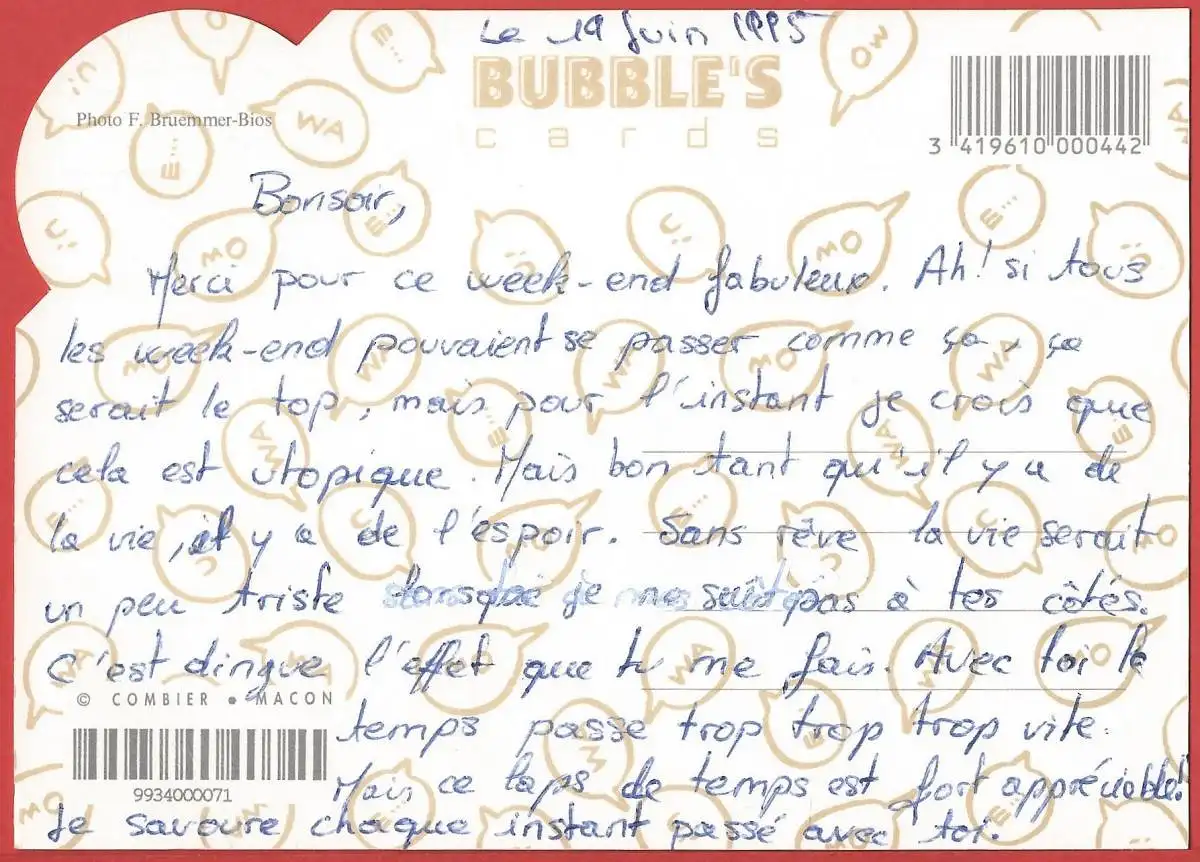 Le 19 Juin 1995
BUBBLE'S
cards
Photo F. Bruemmer-Bios
3 419610 000442
Bonsoir,
Merci pour ce week-end fabuleux. Ah! si tous
les week-end pouvaient se passer comme ça, ça
serait le top, mais pour l'instant je crois que
cela est utopique. Mais bon tant qu'il y a de
la vie, il y a de l'espoir. Sans rêve la vie serait
un peu triste lorsque je ne suis pas à tes côtés.
C'est dingue l'effet que tu me fais. Avec toi le
© COMBIER • MACON
temps passe trop trop trop vite.
Mais ce laps de temps est fort appréciable!
9934000071
Je savoure chaque instant passé avec toi.